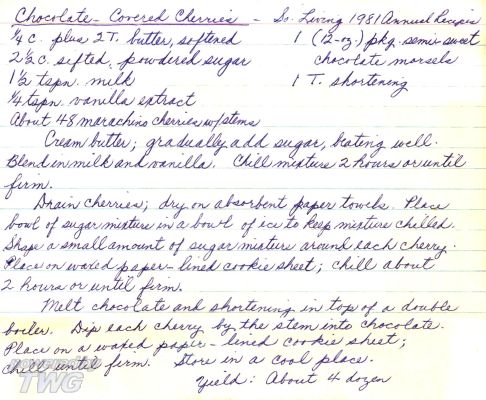 Chocolate-Covered Cherries - So. Living 1981 Annual Recipes
1/4 c. plus 2 T. butter, softened 1 (12-oz.) pkg. semi-sweet
2 1/2 c. sifted, powdered sugar chocolate morsels
1 1/2 tspn. milk 1 T. shortening
1/4 tspn. vanilla extract
About 48 marachino cherries w/stems
Cream butter; gradually add sugar, beating well.
Blend in milk and vanilla. Chill mixture 2 hours or until
firm.
Drain cherries; dry on absorbent paper towels. Place
bowl of sugar mixture in a bowl of ice to keep mixture chilled.
Shape a small amount of sugar mixture around each cherry.
Place on waxed paper-lined cookie sheet; chill about
2 hours or until firm.
Melt chocolate and shortening in top of a double
boiler. Dip each cherry by the stem into chocolate.
Place on a waxed paper-lined cookie sheet;
chill until firm. Store in a cool place.
Yield: About 4 dozen
TWG